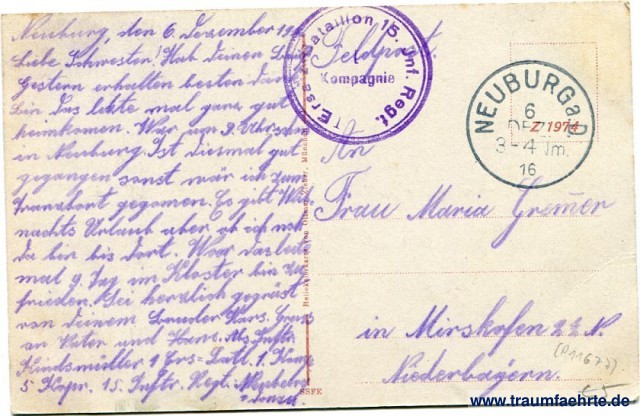 Neuburg, den 6. Dezember 19
Liebe Schwester! Hab deinen
Gestern erhalten besten Dank
Bin das letzte mal ganz gut
heimkomen. War um 9 Uhr schon
in Neuburg. Ist diesmal gut
gegangen sonst wär ich zum
Transbort gegomen. Es gibt Weih
nachts Urlaub aber ob ich noch
da bin bis dort. War das letze
mal 9 Tag im Kloster bin zu
frieden. Sei herzlich gegrüst
von deinem Bruder Gruss
an Vater und Hans. Abs. Inftr.
Hindsmüller 1 Ers= Batl. 1. Komp
5 Korp. 15. Inftr. Regt. Neuburg
a. Donau.
Feldpost.
Ersatz Bataillon 15. Inf. Regt.
Kompagnie
NEUBURG a D
6
DEZ
3-4 Nm.
16
Z 1974
An
Frau Maria Gremer
in Mirskofen
Niederbayern.
(P11677)
SSFE
www.traumfaehrte.de